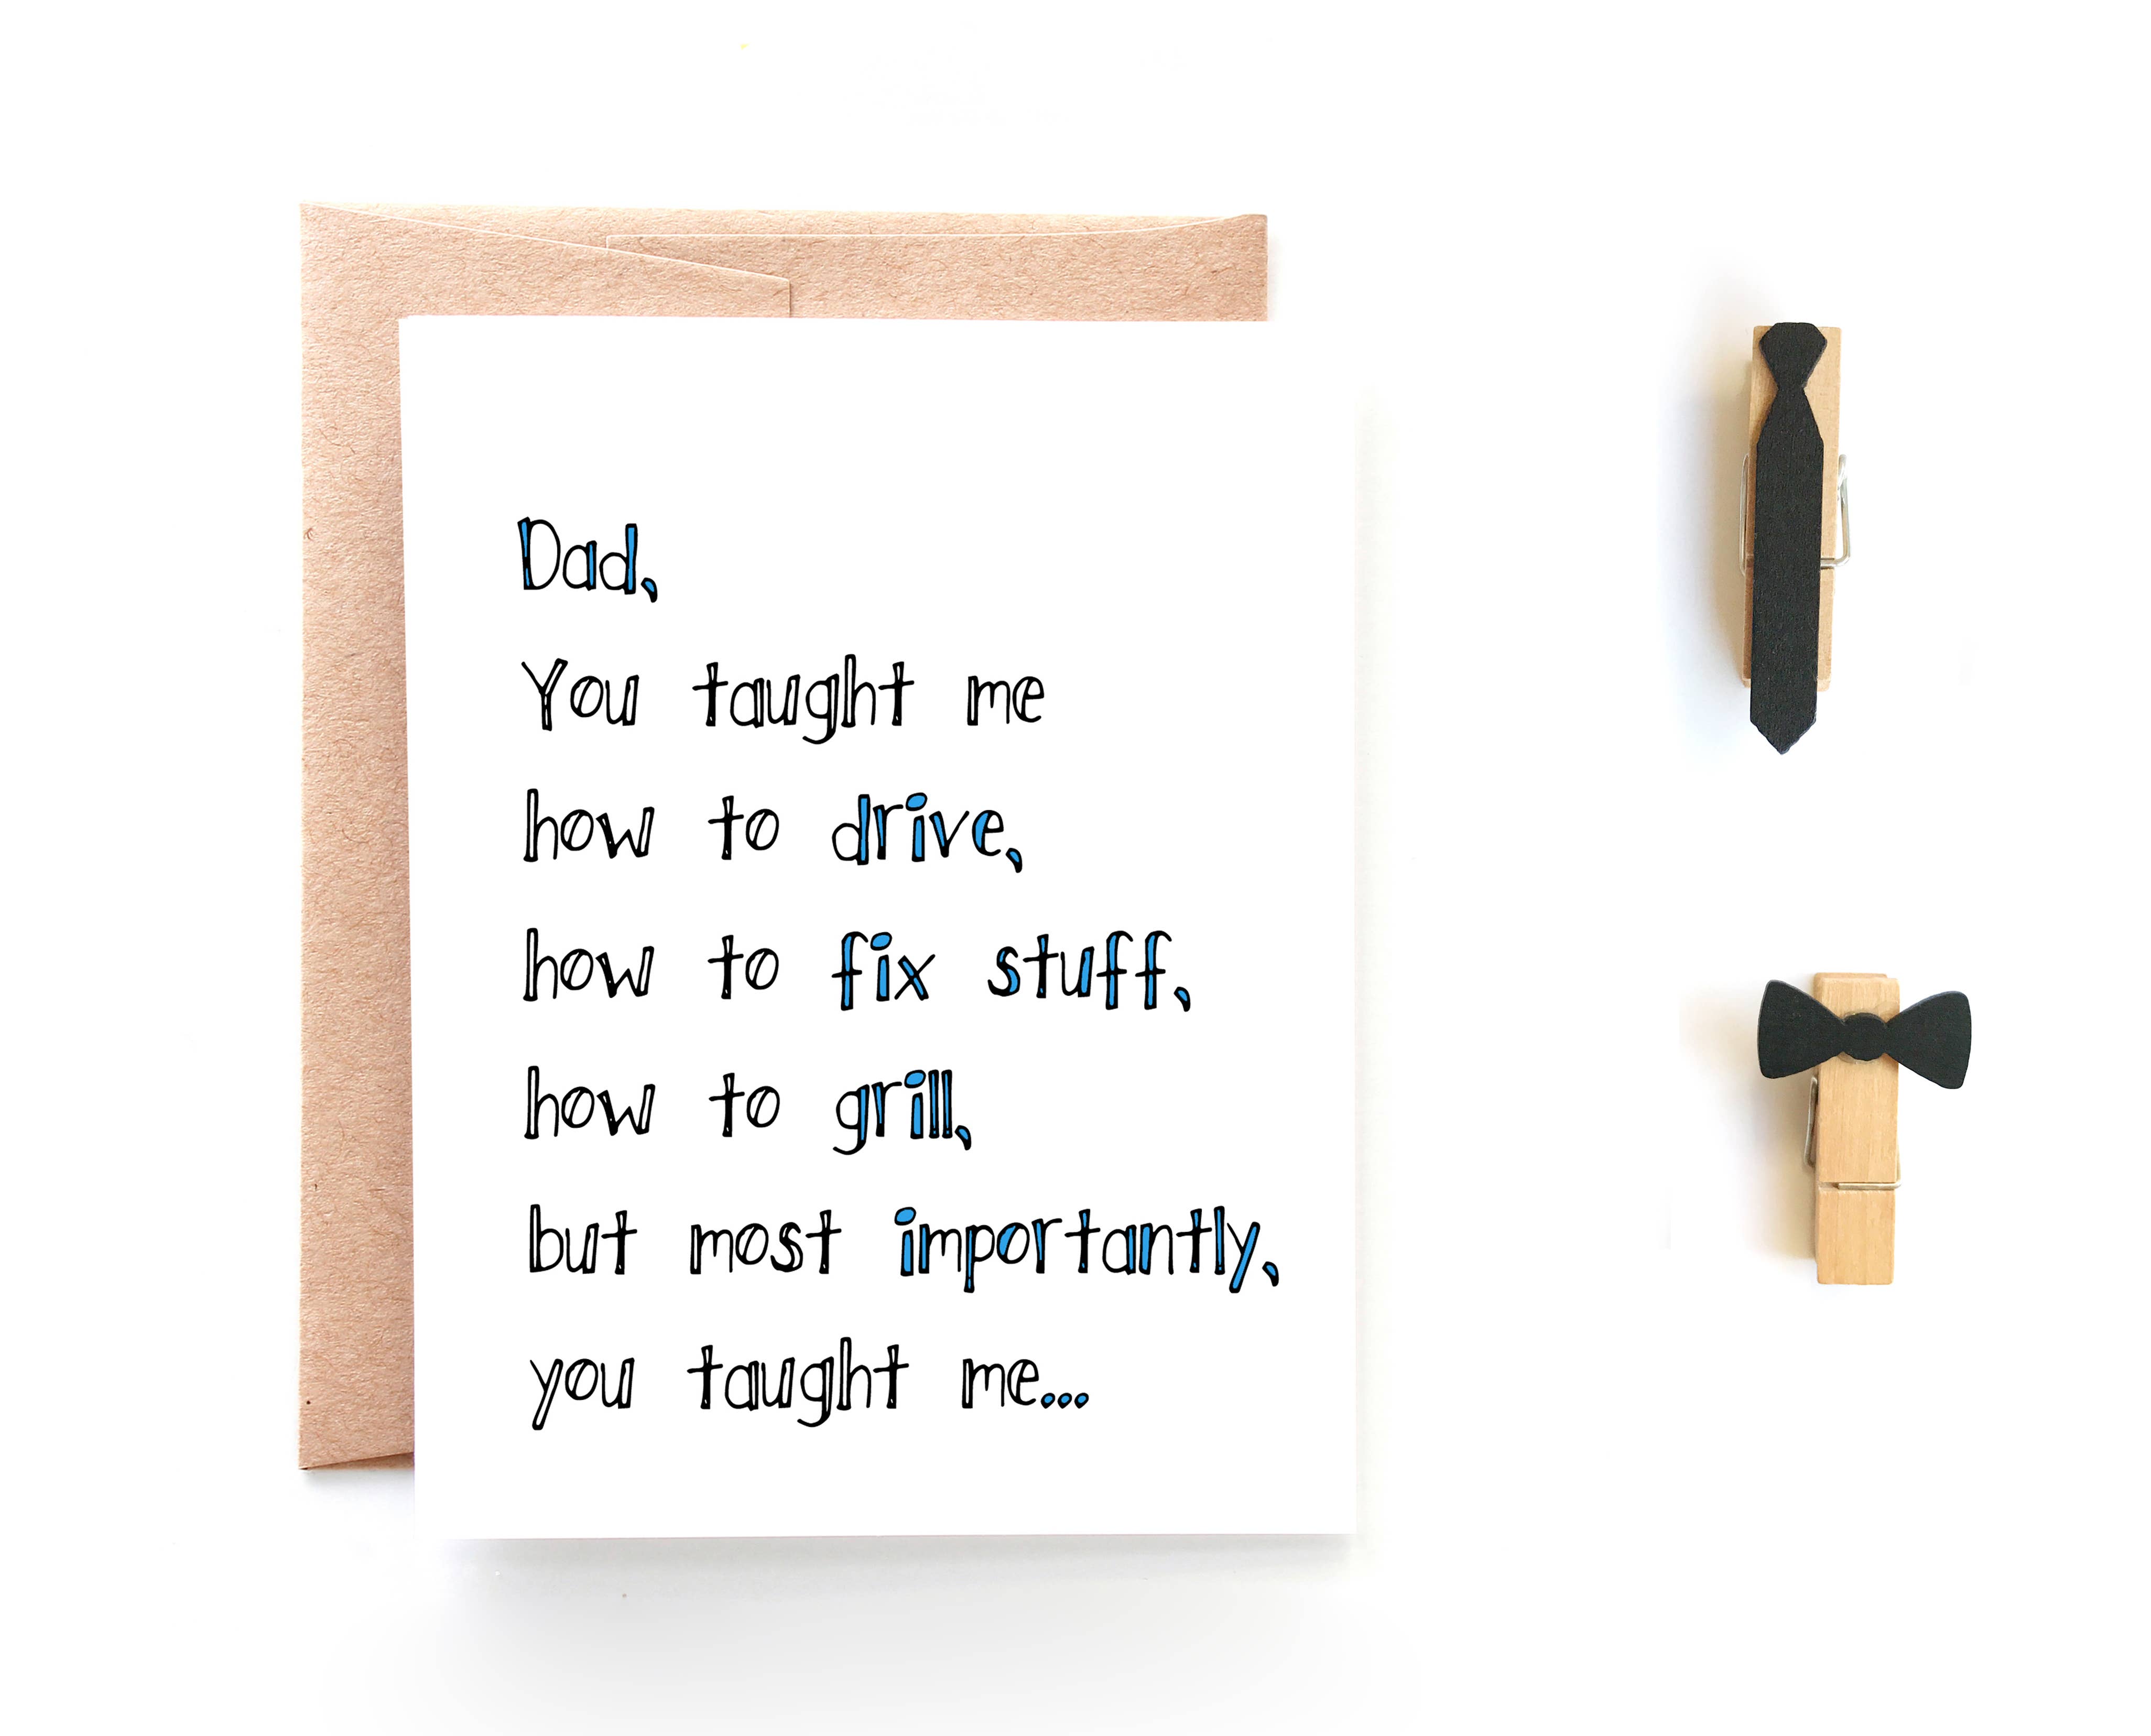 Dad,
You taught me
how to drive,
how to fix stuff,
how to grill,
but most importantly,
you taught me...